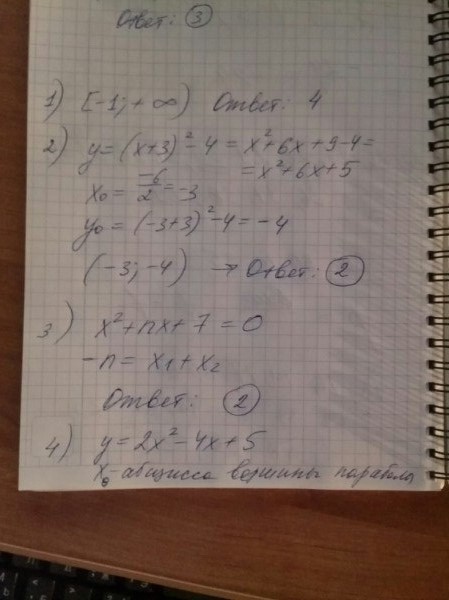 Ответ: 3
1) [-1; +∞) Ответ: 4
2) y = (x+3)² - 4 = x² + 6x + 9 - 4 =
= x² + 6x + 5
x₀ = -6/2 = -3
y₀ = (-3+3)² - 4 = -4
(-3; -4) → Ответ: 2
3) x² + nx + 7 = 0
-n = x₁ + x₂
Ответ: 2
4) y = 2x² - 4x + 5
x₀ - абцисса вершины параболы